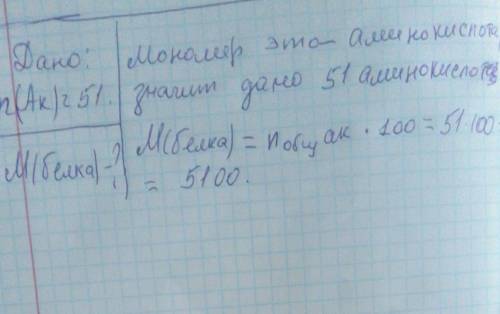 Дано:
n(Ак)=51.
М(белка)-?
Мономер это- аминокислота
значит дано 51 аминокислота
М(белка) = nобщ ак · 100 = 51·100
= 5100.